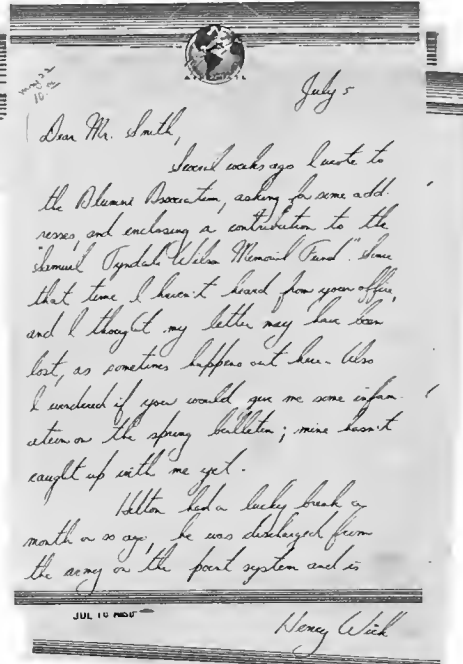 may 22
July 5
Dear Mr. Smith,
Several weeks ago I wrote to
the Alumni Association, asking for some add-
resses, and enclosing a contribution to the
"Samuel Tyndale Wilson Memorial Fund". Since
that time I haven't heard from your office,
and I thought my letter may have been
lost, as sometimes happens out here. Also
I wondered if you would give me some inform-
ation on the spring bulletin; mine hasn't
caught up with me yet.
Hilton had a lucky break a
month or so ago, he was discharged from
the army on the point system and is
JUL 10
Henry Wick